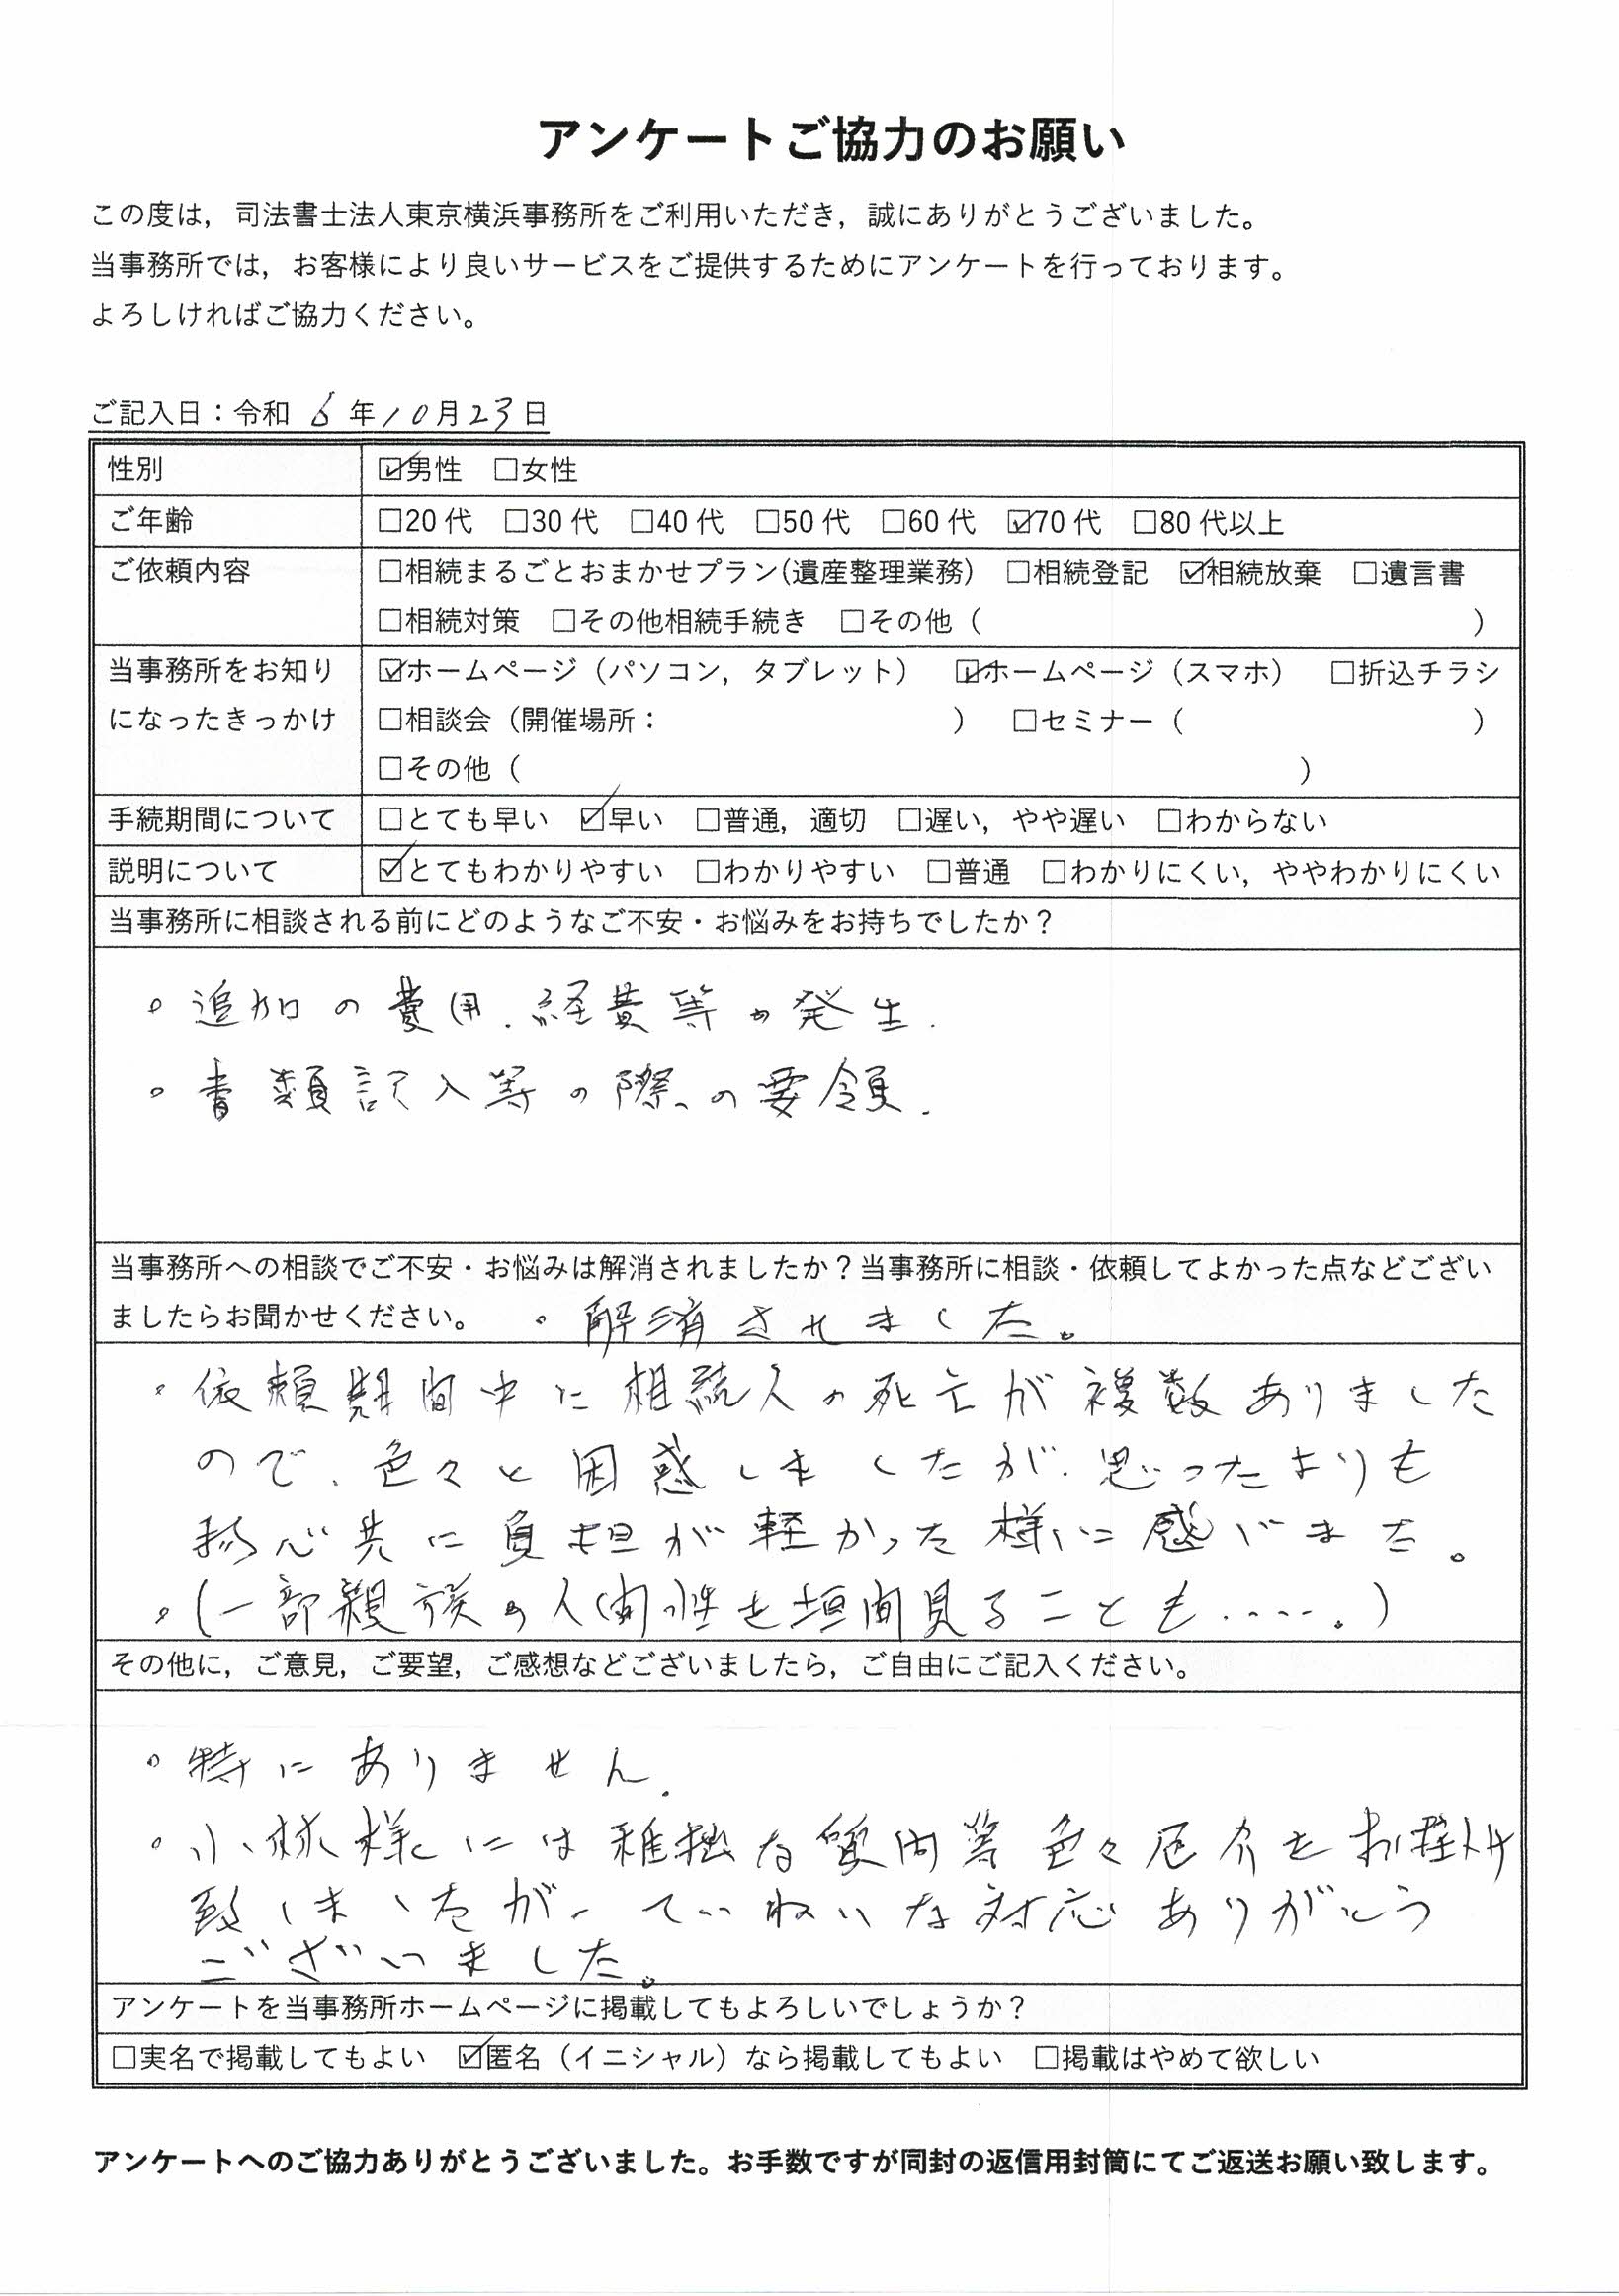 アンケートご協力のお願い
この度は，司法書士法人東京横浜事務所をご利用いただき，誠にありがとうございました。
当事務所では，お客様により良いサービスをご提供するためにアンケートを行っております。
よろしければご協力ください。
ご記入日：令和 6 年 10 月 23 日
性別 ☑男性 □女性
ご年齢 □20 代 □30 代 □40 代 □50 代 □60 代 ☑70 代 □80 代以上
ご依頼内容 □相続まるごとおまかせプラン(遺産整理業務) □相続登記 ☑相続放棄 □遺言書
□相続対策 □その他相続手続き □その他（ ）
当事務所をお知り ☑ホームページ（パソコン，タブレット） ☑ホームページ（スマホ） □折込チラシ
になったきっかけ □相談会（開催場所： ） □セミナー（ ）
□その他（ ）
手続期間について □とても早い ☑早い □普通，適切 □遅い，やや遅い □わからない
説明について ☑とてもわかりやすい □わかりやすい □普通 □わかりにくい，ややわかりにくい
当事務所に相談される前にどのようなご不安・お悩みをお持ちでしたか？
。追加の費用、経費等の発生.
。書類記入等の際、の要領.
当事務所への相談でご不安・お悩みは解消されましたか？当事務所に相談・依頼してよかった点などござい
ましたらお聞かせください。 。解消されました。
。依頼期間中に相続人の死亡が複数ありました
ので、色々と困惑しましたが、思ったよりも
物心共に負担が軽かった様に感じます。
。(一部親族の人間性を垣間見ることも.....。)
その他に，ご意見，ご要望，ご感想などございましたら，ご自由にご記入ください。
。特にありません.
。小林様には稚拙な質問等色々厄介をお掛け
致しましたが、ていねいな対応ありがとう
ございました。
アンケートを当事務所ホームページに掲載してもよろしいでしょうか？
□実名で掲載してもよい ☑匿名（イニシャル）なら掲載してもよい □掲載はやめて欲しい
アンケートへのご協力ありがとうございました。お手数ですが同封の返信用封筒にてご返送お願い致します。